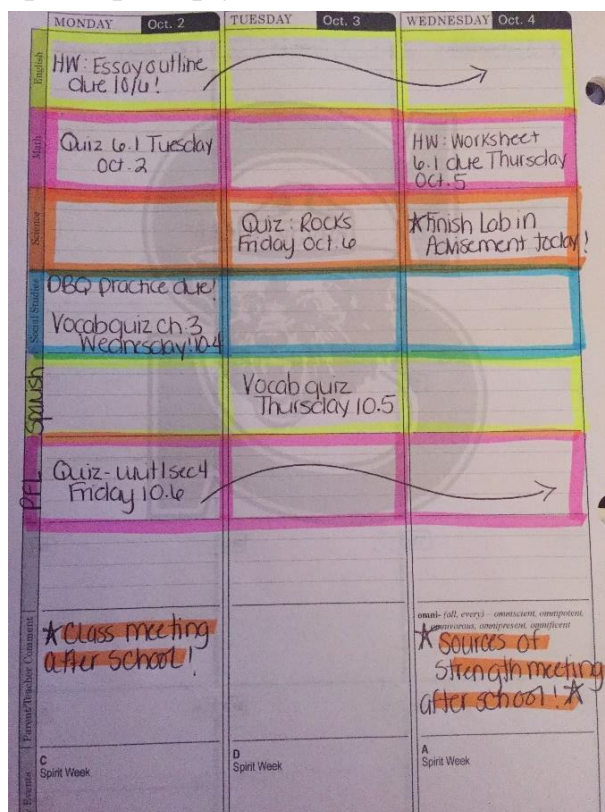 MONDAY Oct. 2
TUESDAY Oct. 3
WEDNESDAY Oct. 4
English
HW: Essay outline
due 10/6!
Math
Quiz 6.1 Tuesday
Oct. 2
HW: Worksheet
6.1 due Thursday
Oct. 5
Science
Quiz: Rocks
Friday Oct. 6
★Finish Lab in
Advisement today!
Social Studies
DBQ practice due!
Vocab quiz ch.3
Wednesday! 10.4
Spanish
Vocab quiz
Thursday 10.5
PFL
Quiz - unit 1 sec 4
Friday 10.6
Parent/Teacher Comment
★Class meeting
after school!
omni- (all, every) – omniscient, omnipotent,
omnivorous, omnipresent, omnificent
★Sources of
Strength meeting
after school!★
Events
C
Spirit Week
D
Spirit Week
A
Spirit Week